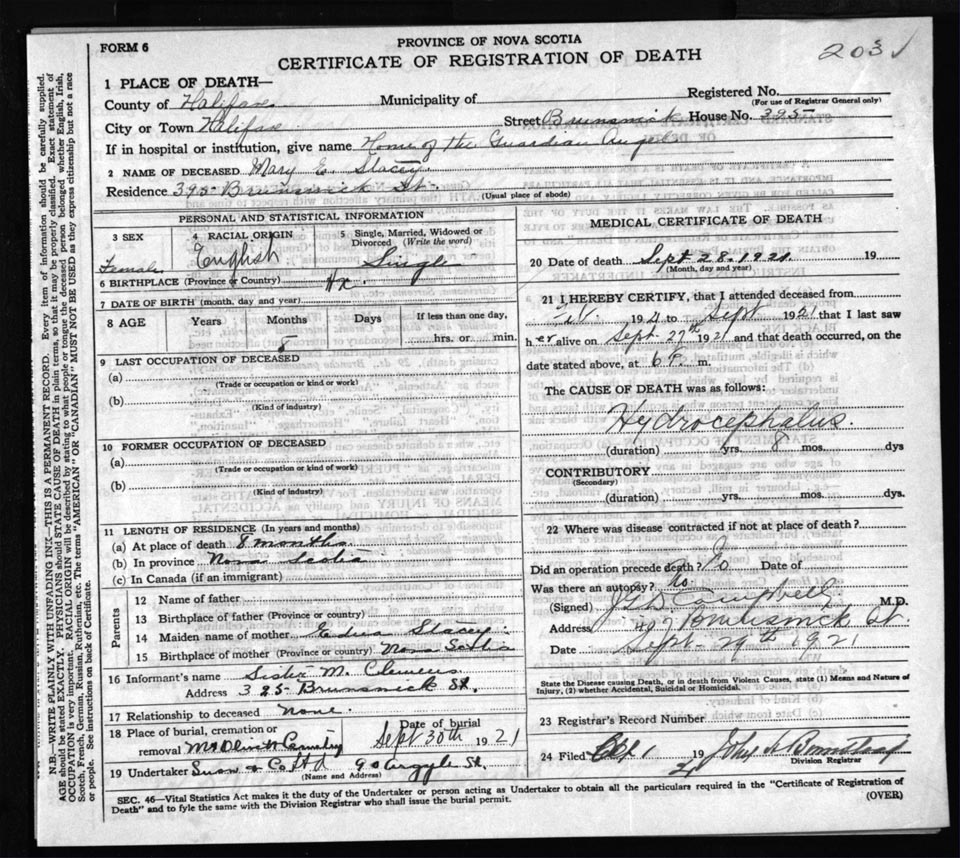 FORM 6
PROVINCE OF NOVA SCOTIA
203
CERTIFICATE OF REGISTRATION OF DEATH
1 PLACE OF DEATH—
County of Halifax Municipality of Registered No.
(For use of Registrar General only)
City or Town Halifax Street Brunswick House No. 395
If in hospital or institution, give name Home of the Guardian Angel
2 NAME OF DECEASED Mary E. Stacey
Residence 395 Brunswick St.
(Usual place of abode)
PERSONAL AND STATISTICAL INFORMATION
3 SEX 4 RACIAL ORIGIN 5 Single, Married, Widowed or
Divorced (Write the word)
Female English Single
6 BIRTHPLACE (Province or Country) Hx.
7 DATE OF BIRTH (month, day and year)
8 AGE Years Months Days If less than one day,
8 hrs. or min.
9 LAST OCCUPATION OF DECEASED
(a)
(Trade or occupation or kind or work)
(b)
(Kind of industry)
10 FORMER OCCUPATION OF DECEASED
(a)
(Trade or occupation or kind of work)
(b)
(Kind of industry)
11 LENGTH OF RESIDENCE (In years and months)
(a) At place of death 8 months
(b) In province Nova Scotia
(c) In Canada (if an immigrant)
Parents
12 Name of father
13 Birthplace of father (Province or country)
14 Maiden name of mother Edna Stacey
15 Birthplace of mother (Province or country) Nova Scotia
16 Informant's name Sister M. Clemens
Address 325 Brunswick St.
17 Relationship to deceased None.
18 Place of burial, cremation or Date of burial
removal Mt Olivet Cemetery Sept 30th 1921
19 Undertaker Snow & Co Ltd 90 Argyle St.
(Name and Address)
MEDICAL CERTIFICATE OF DEATH
20 Date of death Sept 28.1921 19
(Month, day and year)
21 I HEREBY CERTIFY, that I attended deceased from
1921 to Sept 1921 that I last saw
her alive on Sept 27th 1921 and that death occurred, on the
date stated above, at 6 P. m.
The CAUSE OF DEATH was as follows:
Hydrocephalus.
(duration) yrs. 8 mos. dys
CONTRIBUTORY
(Secondary)
(duration) yrs. mos. dys.
22 Where was disease contracted if not at place of death?
Did an operation precede death? No Date of
Was there an autopsy? No.
(Signed) Campbell M.D.
Address 407 Brunswick St.
Date Sept. 29th 1921
State the Disease causing Death, or in death from Violent Causes, state (1) Means and Nature of
Injury, (2) whether Accidental, Suicidal or Homicidal.
23 Registrar's Record Number
24 Filed Oct 1 1921 John
Division Registrar
SEC. 46—Vital Statistics Act makes it the duty of the Undertaker or person acting as Undertaker to obtain all the particulars required in the "Certificate of Registration of
Death" and to fyle the same with the Division Registrar who shall issue the burial permit. (OVER)
N.B.—WRITE PLAINLY WITH UNFADING INK—THIS IS A PERMANENT RECORD. Every item of information should be carefully supplied.
AGE should be stated EXACTLY. PHYSICIANS should STATE CAUSE OF DEATH in plain terms, so that it may be properly classified. Exact statement of
OCCUPATION is very important. RACIAL ORIGIN will be described by stating to what people or tongue the deceased person belonged whether English, Irish,
Scotch, French, German, Russian, Ruthenian, etc. The terms "AMERICAN" OR "CANADIAN" MUST NOT BE USED as they express citizenship but not a race
or people. See instructions on back of Certificate.